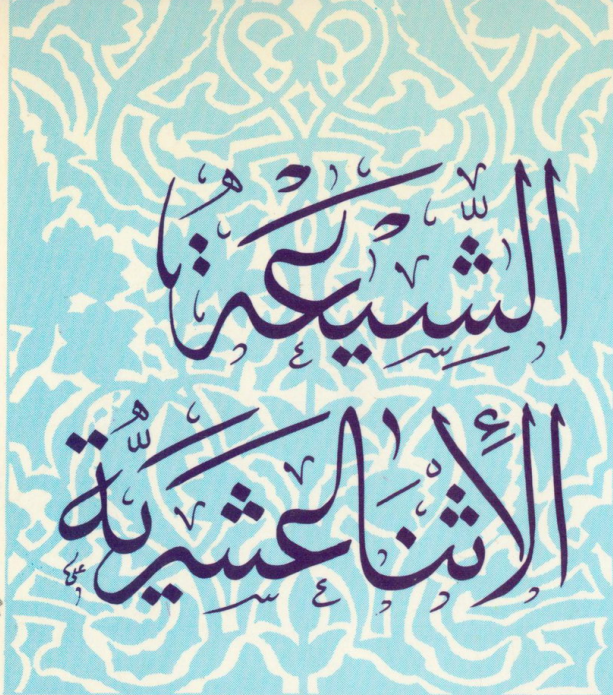 الشِّيعَةُ
الإثنَا لعشريَّة